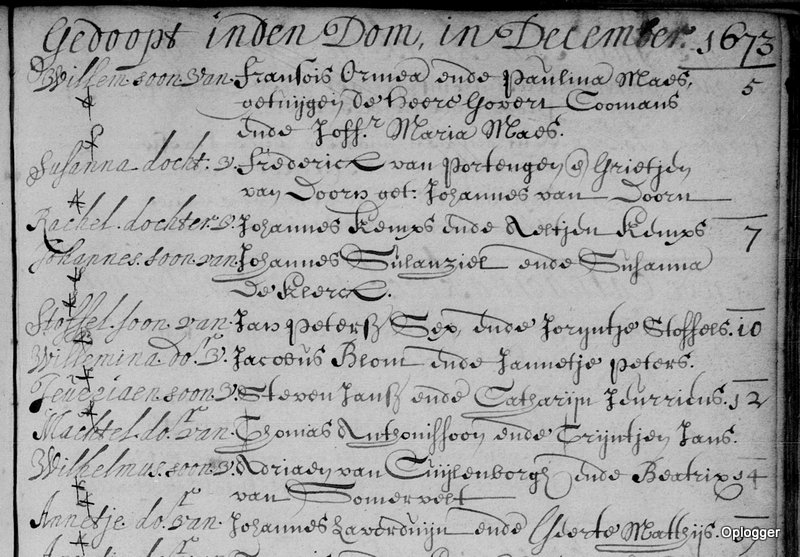 Gedoopt inden Dom, in December. 1673
Willem soon van Fransois Ormea ende Paulina Maes, 5
getuijgen de Heere Govert Coomans
ende Joffr. Maria Maes.
Susanna docht. v. Frederick van Portengen Grietjen
van Doorn get: Johannes van Doorn
Rachel dochter v. Johannes Kemps ende Aeltjen Kemps 7
Johannes soon van Johannes ende Susanna
de Klerck.
Stoffel soon van Jan Peterss Sex, ende Jorijntje Stoffels. 10
Willemina dor v. Jacobus Blom ende Jannetje Peters.
Jeurriaen soon v. Steven Janss ende Catharijn Jeurriens. 12
Machtel dor van Thomas Anthonissoon ende Trijntjen Jans.
Wilhelmus soon v. Adriaen van Cuijlenborgh ende Beatrix 14
van Somervelt
Annetje dor van Johannes Laverduijn ende Geerte Matthijs.
Oplogger